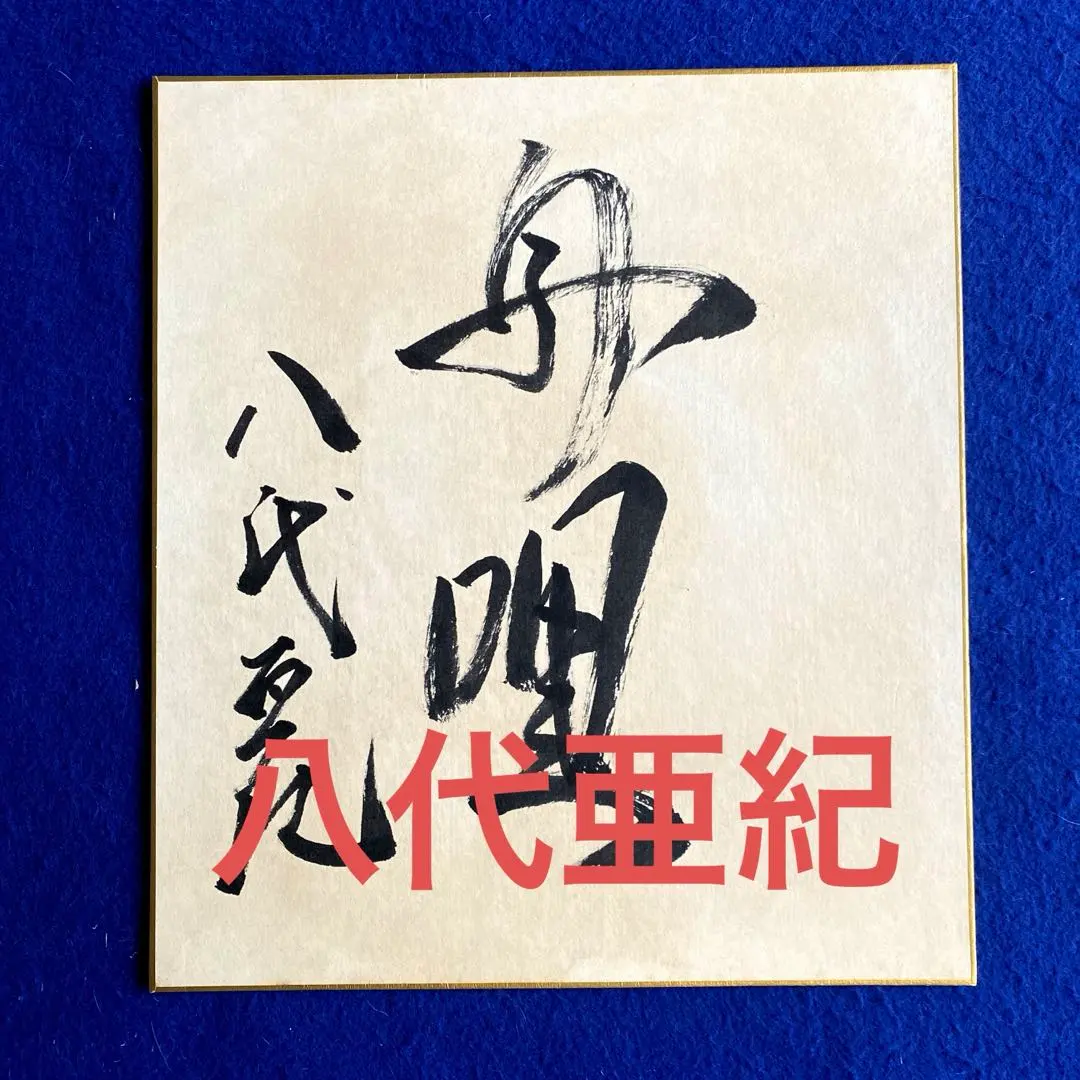 舟唄
八代亜紀
八代亜紀